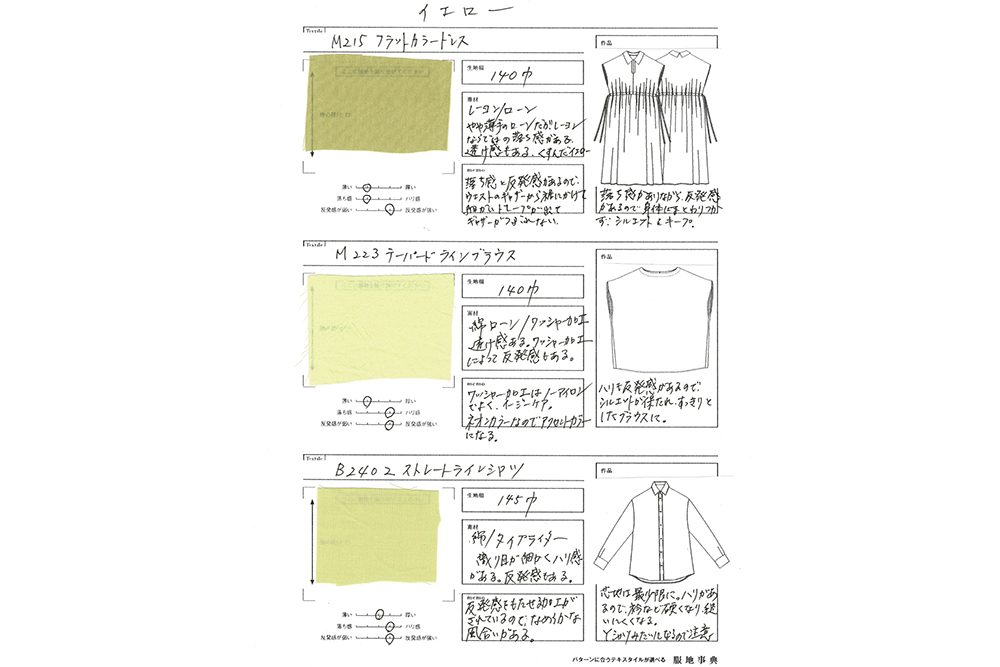 イエロー
Textile
M215 フラットカラードレス
生地幅
140巾
素材
レーヨン/ローン
やや薄手のローンだがレーヨン
ならではの落ち感がある。
透け感もある。くすんだイエロー
落ち感と反発感があるので、
ウエストのギャザーから裾にかけて
ギャザーがつぶれない。
薄い 厚い
落ち感 ハリ感
反発感が弱い 反発感が強い
作品
落ち感がありながら、反発感
があるので身体にまとわりつか
ず、シルエットをキープ。
Textile
M223 テーパードラインブラウス
生地幅
140巾
素材
綿ローン/ワッシャー加工
透け感ある。ワッシャー加工
によって反発感もある。
ワッシャー加工はノーアイロン
でよく、イージーケア。
ネオンカラーなのでアクセントカラー
になる。
薄い 厚い
落ち感 ハリ感
反発感が弱い 反発感が強い
作品
ハリと反発感があるので
シルエットが保たれ、すっきりと
したブラウスに。
Textile
B2402 ストレートラインシャツ
生地幅
145巾
素材
綿/タイプライター
織り目が細かくハリ感
がある。反発感もある。
反発感をもたせる加工が
されているので、なめらかな
風合いがある。
薄い 厚い
落ち感 ハリ感
反発感が弱い 反発感が強い
作品
芯地は最少限に。ハリがあ
るので、衿など硬くなり、縫
いにくくなる。
パターンに合うテキスタイルが選べる 服地事典